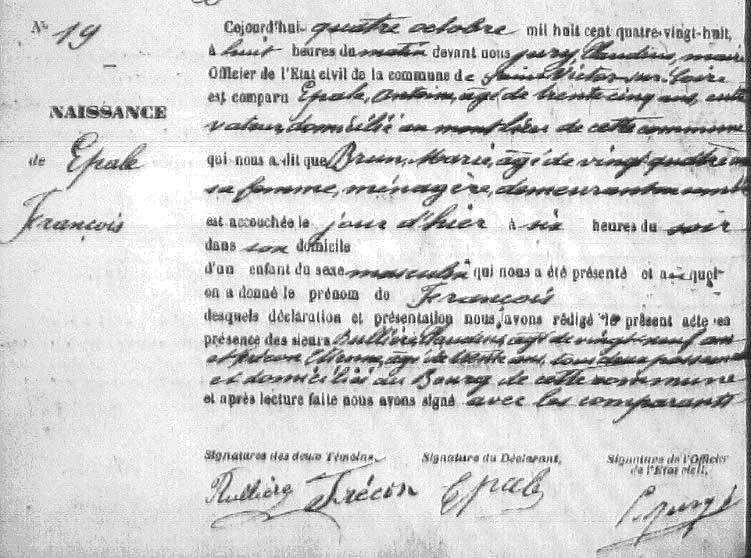 N° 19
NAISSANCE
de Epale
François
Cejourd'hui quatre octobre mil huit cent quatre-vingt-huit,
à huit heures du matin devant nous Jury, Claudius, maire
Officier de l'Etat civil de la commune de Saint Victor-sur-Loire
est comparu Epale, Antoine, âgé de trente cinq ans, culti
vateur, domicilié au de cette commune
qui nous a dit que Brun, Marie, âgée de vingt quatre ans
sa femme, ménagère, demeurant
est accouchée le jour d'hier à six heures du soir
dans son domicile
d'un enfant du sexe masculin qui nous a été présenté et auquel
on a donné le prénom de François
desquels déclaration et présentation nous avons rédigé le présent acte en
présence des sieurs Rullière, Claudius, âgé de vingt-neuf ans
et Frécon Etienne, âgé de trente ans, tous deux
et domiciliés au Bourg de cette commune
et après lecture faite nous avons signé avec les comparants
Signatures des deux Témoins, Signature du Déclarant, Signature de l'Officier
de l'Etat civil,
Rullière Frécon Epale